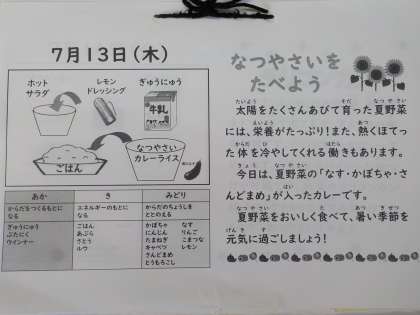 7月13日(木)
ホット
サラダ
レモン
ドレッシング
ぎゅうにゅう
牛乳
ごはん
なつやさい
カレーライス
あか
き
みどり
からだをつくるもとに
なる
エネルギーのもとに
なる
からだのちょうしを
ととのえる
ぎゅうにゅう
ぶたにく
ウインナー
ごはん
あぶら
さとう
ルウ
かぼちゃ なす
にんじん りんご
たまねぎ こまつな
キャベツ レモン
さんどまめ
とうもろこし
なつやさいを
たべよう
太陽をたくさんあびて育った夏野菜
には、栄養がたっぷり!また、熱くほてっ
た体を冷やしてくれる働きもあります。
今日は、夏野菜の「なす・かぼちゃ・さ
んどまめ」が入ったカレーです。
夏野菜をおいしく食べて、暑い季節を
元気に過ごしましょう!